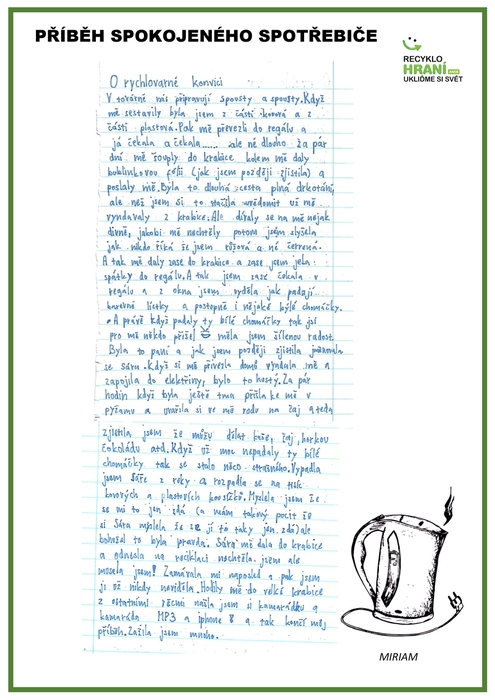 PŘÍBĚH SPOKOJENÉHO SPOTŘEBIČE
RECYKLO
HRANÍ
UKLIĎME SI SVĚT
O rychlovarné konvici
V továrně nás připravují spousty a spousty. Když
mě sestavily byla jsem z části kovová a z
části plastová. Pak mě převezli do regálu a
já čekala a čekala...... ale né dlouho za pár
dní mě šouply do krabice kolem mě daly
bublinkovou folii (jak jsem později zjistila) a
poslaly mě. Byla to dlouhá cesta plná drkotání,
ale než jsem si to stačila uvědomit už mě
vyndavaly z krabice. Ale dívaly se na mě nějak
divně, jakobi mě nechtěly potom jsem slyšela
jak někdo říká že jsem růžová a né červená.
A tak mě daly zase do krabice a zase jsem jela
spátky do regálu. A tak jsem zase čekala v
regálu a z okna jsem vyděla jak padají
barevné lístky a postupně i nějaké býlé chomáčky.
A právě když padaly ty bílé chomáčky tak jsi
pro mě někdo přišel měla jsem šílenou radost.
Byla to paní a jak jsem později zjistila jmenovala
se Sára. Když si mě přivezla domů vyndala mě a
zapojila do elektřiny, bylo to hustý. Za pár
hodin když byla ještě tma přišla ke mě v
pyžamu a uvařila si ve mě vodu na čaj a teda
zjistila jsem že můžu dělat kafe, čaj, horkou
čokoládu atd. Když už moc nepadaly ty bílé
chomáčky tak se stalo něco strašného. Vypadla
jsem Sáře z ruky a rozpadla se na tisíc
kovových a plastových kousíčků. Myslela jsem že
se mi to jen zdá (a mám takový pocit že
si Sára myslela že se jí to taky jen zdá) ale
bohužel to byla pravda. Sára mě dala do krabice
a odnesla na recyklaci nechtěla jsem ale
musela jsem! Zamávala mi naposled a pak jsem
ji už nikdy neviděla. Hodily mě do velké krabice
z ostatními věcmi našla jsem si kamarádku a
kamaráda MP3 a iphone 8 a tak končí můj
příběh. Zažila jsem mnoho.
MIRIAM